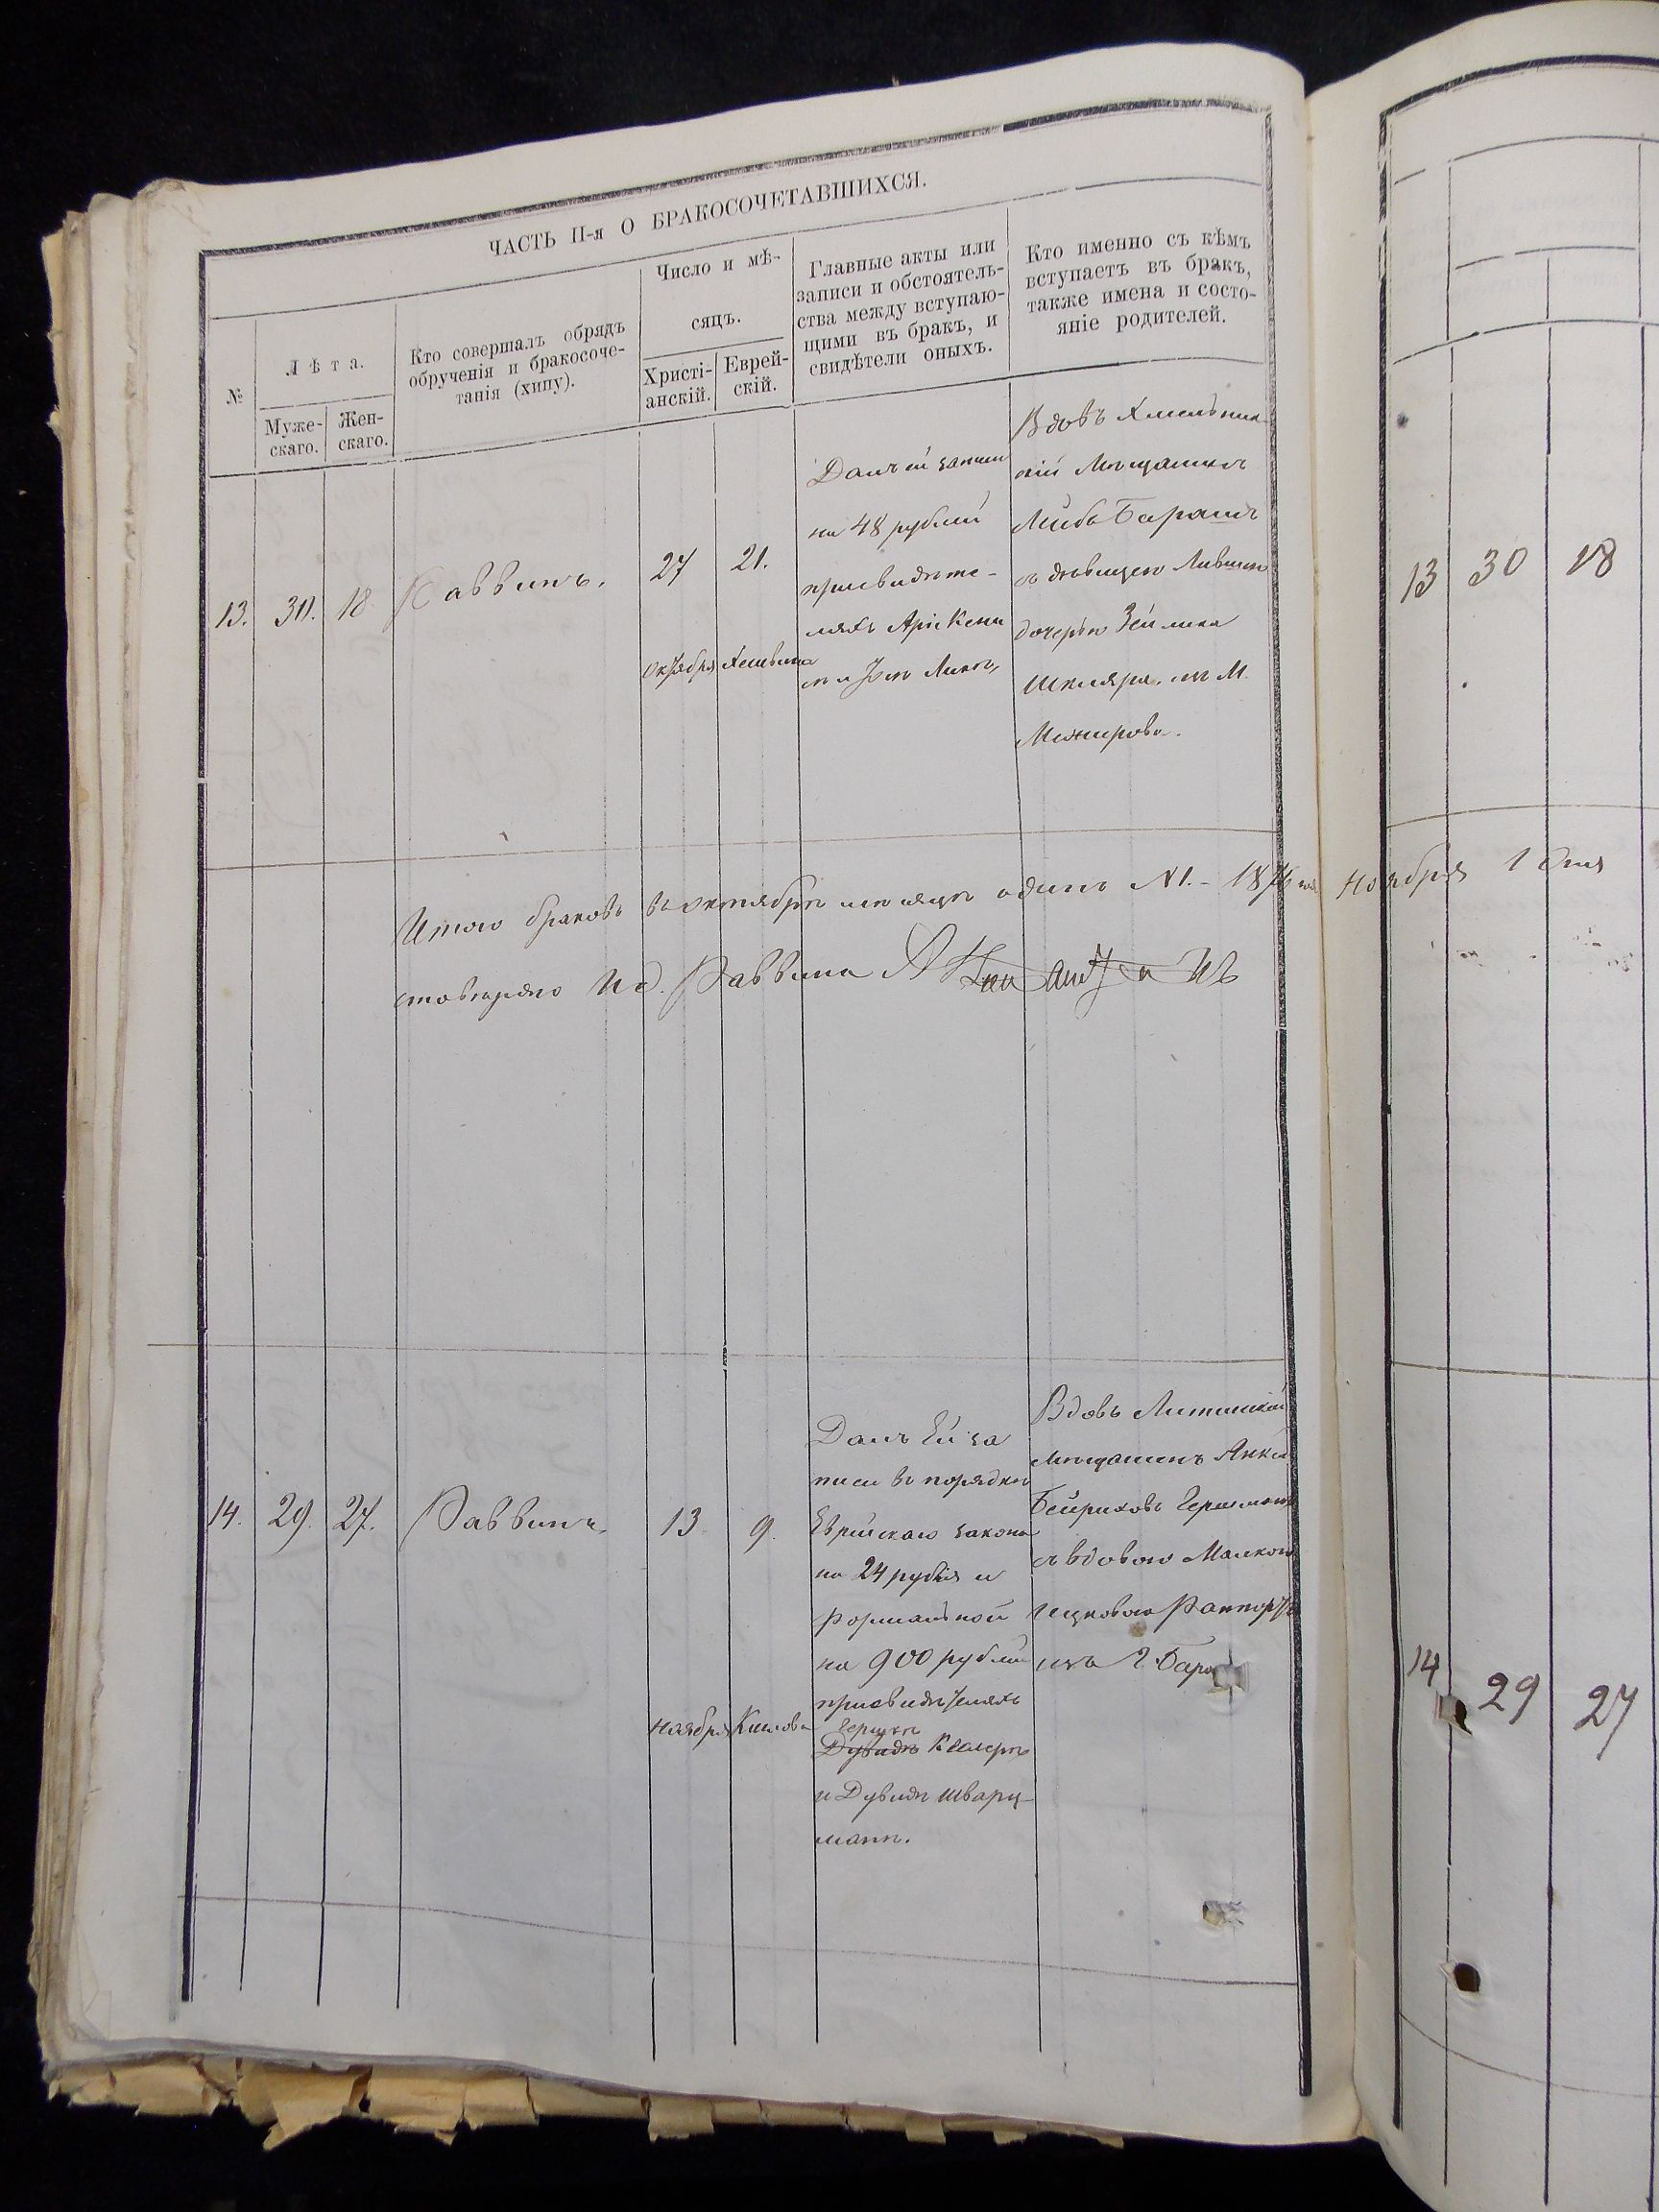 ЧАСТЬ II-я О БРАКОСОЧЕТАВШИХСЯ.
№
Лѣта.
Муже-
скаго.
Жен-
скаго.
Кто совершалъ обрядъ
обрученія и бракосоче-
танія (хипу).
Число и мѣ-
сяцъ.
Христі-
анскій.
Еврей-
скій.
Главные акты или
записи и обстоятель-
ства между вступаю-
щими въ бракъ, и
свидѣтели оныхъ.
Кто именно съ кѣмъ
вступаетъ въ бракъ,
также имена и состо-
яніе родителей.
13.
30.
18
Раввинъ.
27
октября
21.
Хешвана
Далъ ей записи
на 48 рублей
присвидѣте-
ляхъ Аріи
и
Вдовъ Хмельник
кій Мѣщанинъ
Лейба Баранъ
съ дѣвицею
дочерью Зейлика
Шкляра. изъ М.
Межирова.
Итого браковъ въ октябрѣ мѣсяцѣ одинъ №1.- 1876 года Ноября 1 дня
Ид. Раввина
14.
29.
27.
Раввинъ.
13
ноября
9.
Кислова
Далъ Ей за
писи въ порядкѣ
Еврейскаго закона
на 24 рубля и
формальной
на 900 рублей
присвидѣтеляхъ
Гершкѣ
Дувидѣ
и Дувидѣ Шварц-
манѣ.
Вдовъ Литинскій
мѣщанинъ Янкель
Бейриховъ Гершманъ
съ вдовою Малкою
Ицковою Раппортъ
изъ Г. Бара
13
30
18
14
29
27